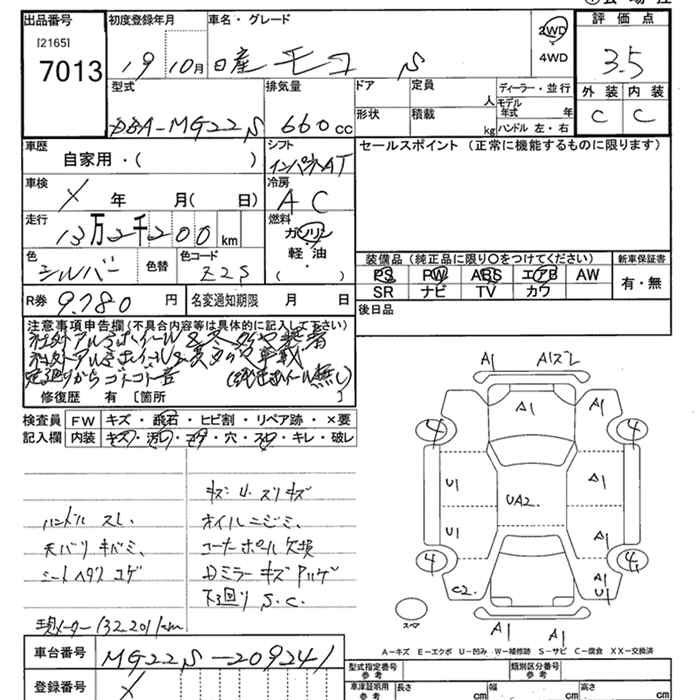 出品番号
[2165]
7013
初度登録年月
19 10月
車名・グレード
日産 モコ S
2WD
4WD
評価点
3.5
外装 内装
C C
型式
DBA-MG22S
排気量
660cc
ドア
定員
人
ディーラー・並行
モデル年式 年
形状
積載
kg
ハンドル 左・右
車歴
自家用・( )
シフト
インパネAT
セールスポイント (正常に機能するものに限ります)
車検
X 年 月( 日)
冷房
AC
走行
13万2千200km
燃料
ガソリン
軽・油
( )
色
シルバー
色替
色コード
Z2S
装備品(純正品に限り〇をつけてください)
新車保証書
PS PW ABS エアB AW
SR ナビ TV カワ
有・無
R券 9,780 円
名変通知期限 月 日
後日品
注意事項申告欄(不具合内容等は具体的に記入して下さい)
社外アルミホイール&冬タイヤ装着
社外アルミホイール&夏タイヤ車載
足廻りからゴトゴト音 (純正ホイール無し)
修復歴 有 [箇所 ]
検査員記入欄
FW キズ・飛石・ヒビ割・リペア跡・×要
内装 キズ・汚レ・コゲ・穴・スレ・キレ・破レ
キズ・小スリキズ
ハンドル スレ、
オイルニジミ、
天バリ キバミ、
コーナーポール欠損
シートヘタリ コゲ
Dミラー キズ
下廻り S.C.
現メーター 132201km
車台番号 MG22S-209241
登録番号 X
A1 A1ズレ
A1 A1
4 4
U1 A1
UA2.
U1 A1
4 4
C2. A1
U1
A1 A1
スペア
A-キズ E-エクボ U-凹み W-補修跡 S-サビ C-腐食 XX-交換済
型式指定番号 参考
類別区分番号 参考
車庫証明用 参考
長さ cm
幅 cm
高さ cm